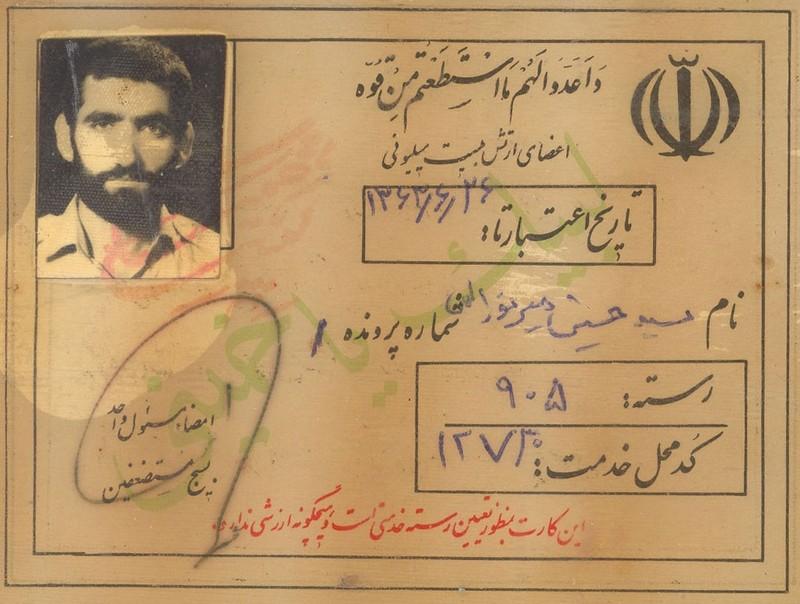 وَاَعِدّوالَهُم مَااستَطَعتُم مِن قُوّه
اعضای ارتش بیست میلیونی
تاریخ اعتبار تا: ۱۳۶۳/۶/۲۶
نام سید حسین شماره پرونده
رسته: ۹۰۵
کد محل خدمت: ۱۲۷۳۰
امضاء مسئول واحد
بسیج مستضعفین
این کارت بمنظور تعیین رسته خدمتی است و هیچگونه ارزشی ندارد.
لبیک یا خمینی